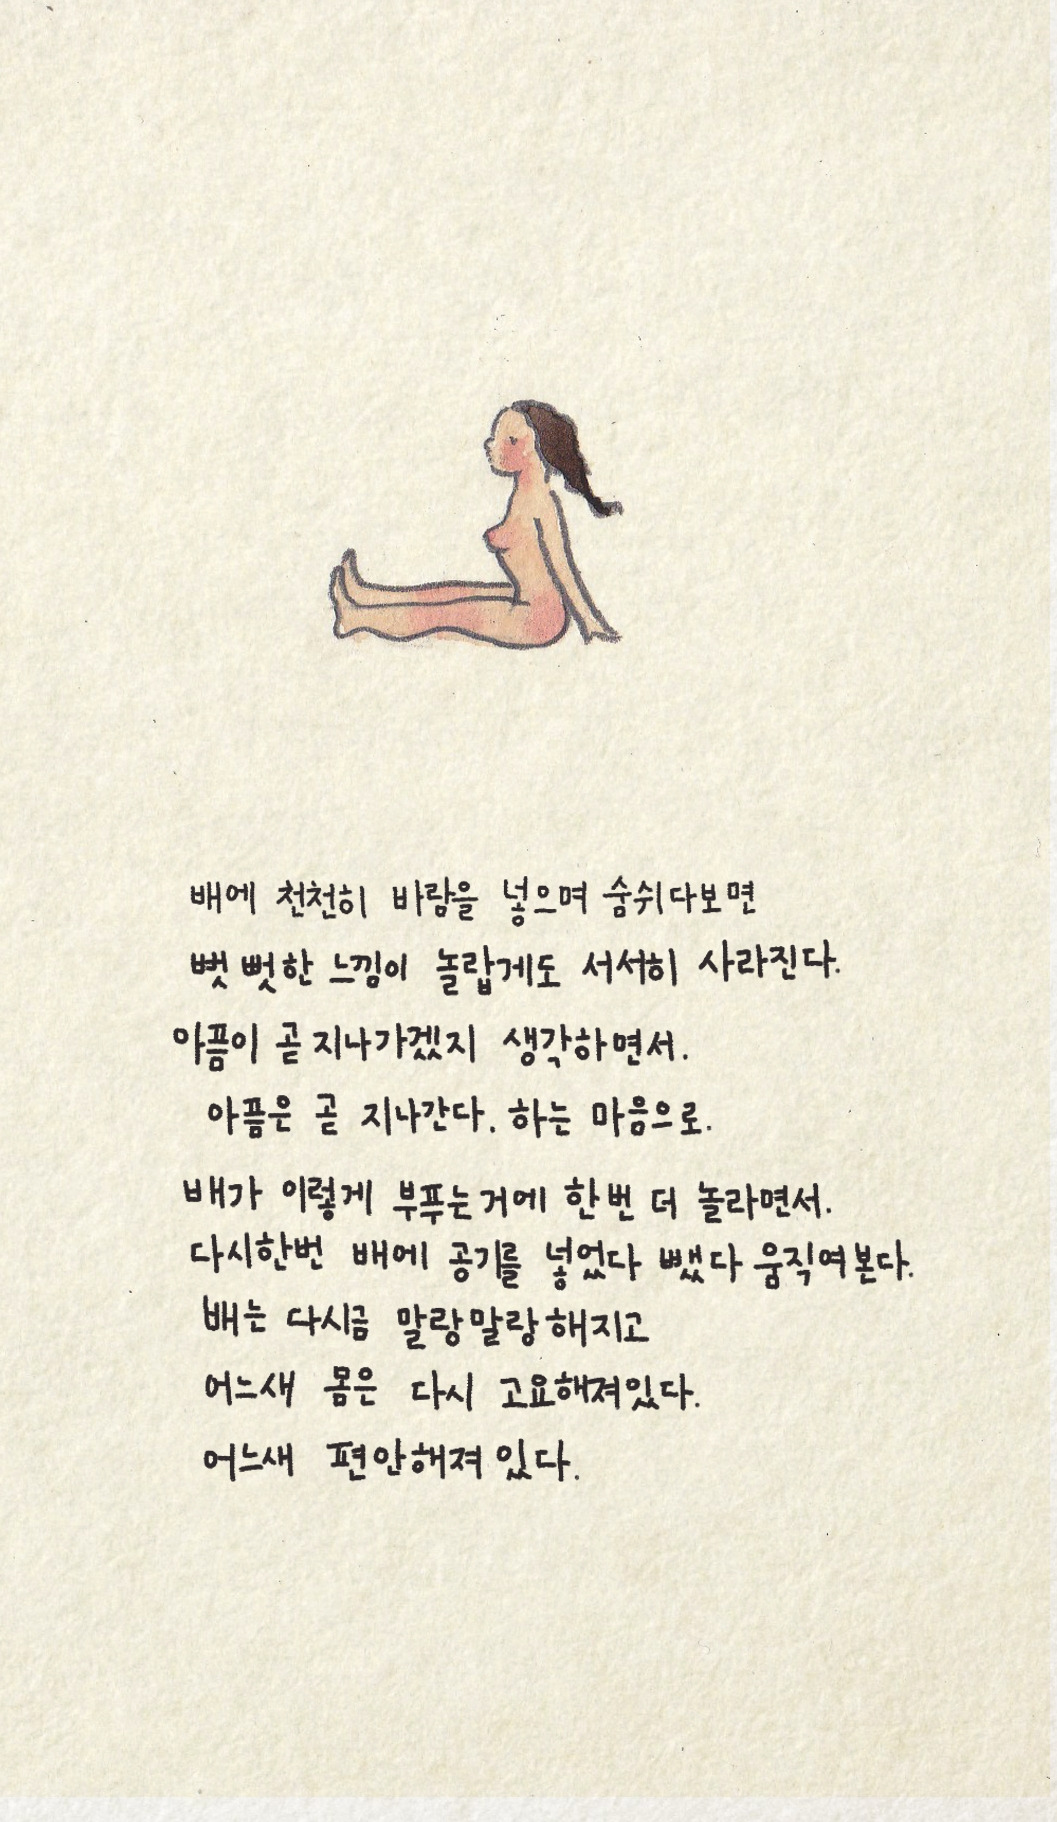 배에 천천히 바람을 넣으며 숨쉬다보면
뻣뻣한 느낌이 놀랍게도 서서히 사라진다.
아픔이 곧 지나가겠지 생각하면서.
아픔은 곧 지나간다. 하는 마음으로.
배가 이렇게 부푸는거에 한번 더 놀라면서.
다시한번 배에 공기를 넣었다 뺐다 움직여본다.
배는 다시금 말랑말랑해지고
어느새 몸은 다시 고요해져있다.
어느새 편안해져 있다.